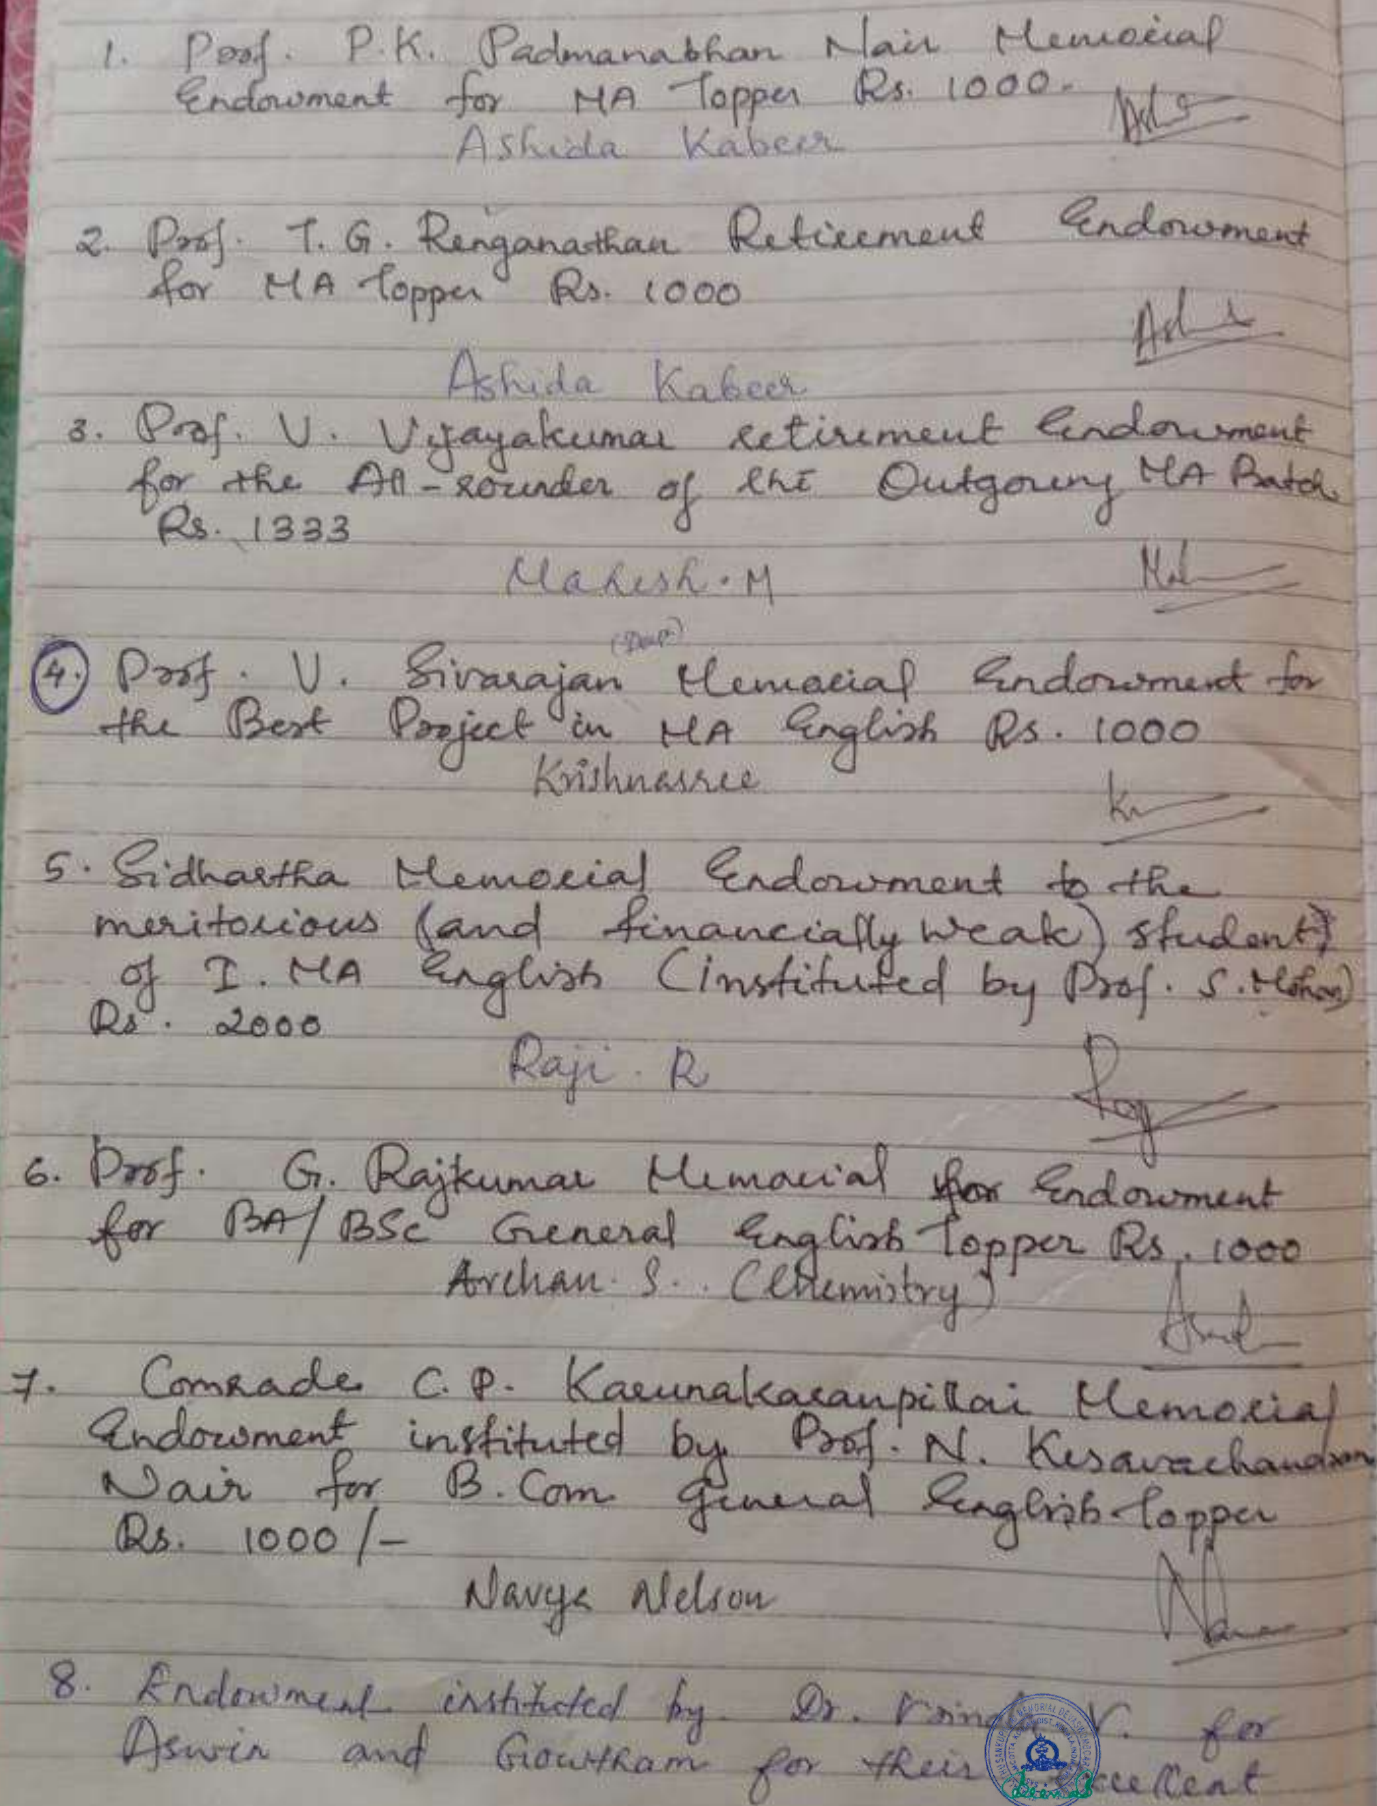 1. Prof. P.K. Padmanabhan Nair Memorial
Endowment for MA Topper Rs. 1000.
Ashida Kabeer
2. Prof. T. G. Renganathan Retirement Endowment
for MA Topper Rs. 1000
Ashida Kabeer
3. Prof. V. Vijayakumar retirement Endowment
for the All-rounder of the Outgoing MA Batch
Rs. 1333
Mahesh. M
4. Prof. V. Sivarajan Memorial Endowment for
the Best Project in MA English Rs. 1000
Krishnasree
5. Sidhartha Memorial Endowment to the
meritorious (and financially weak) student
of I. MA English (instituted by Prof. S. Mohan)
Rs. 2000
Raji. R
6. Prof. G. Rajkumar Memorial for Endowment
for BA/BSc General English Topper Rs. 1000
Archan. S. (Chemistry)
7. Comrade C.P. Karunakaranpillai Memorial
Endowment instituted by Prof. N. Kesavachandran
Nair for B.Com General English Topper
Rs. 1000/-
Navya Nelson
8. Endowment instituted by Dr. V. for
Aswin and Gowtham for their excellent